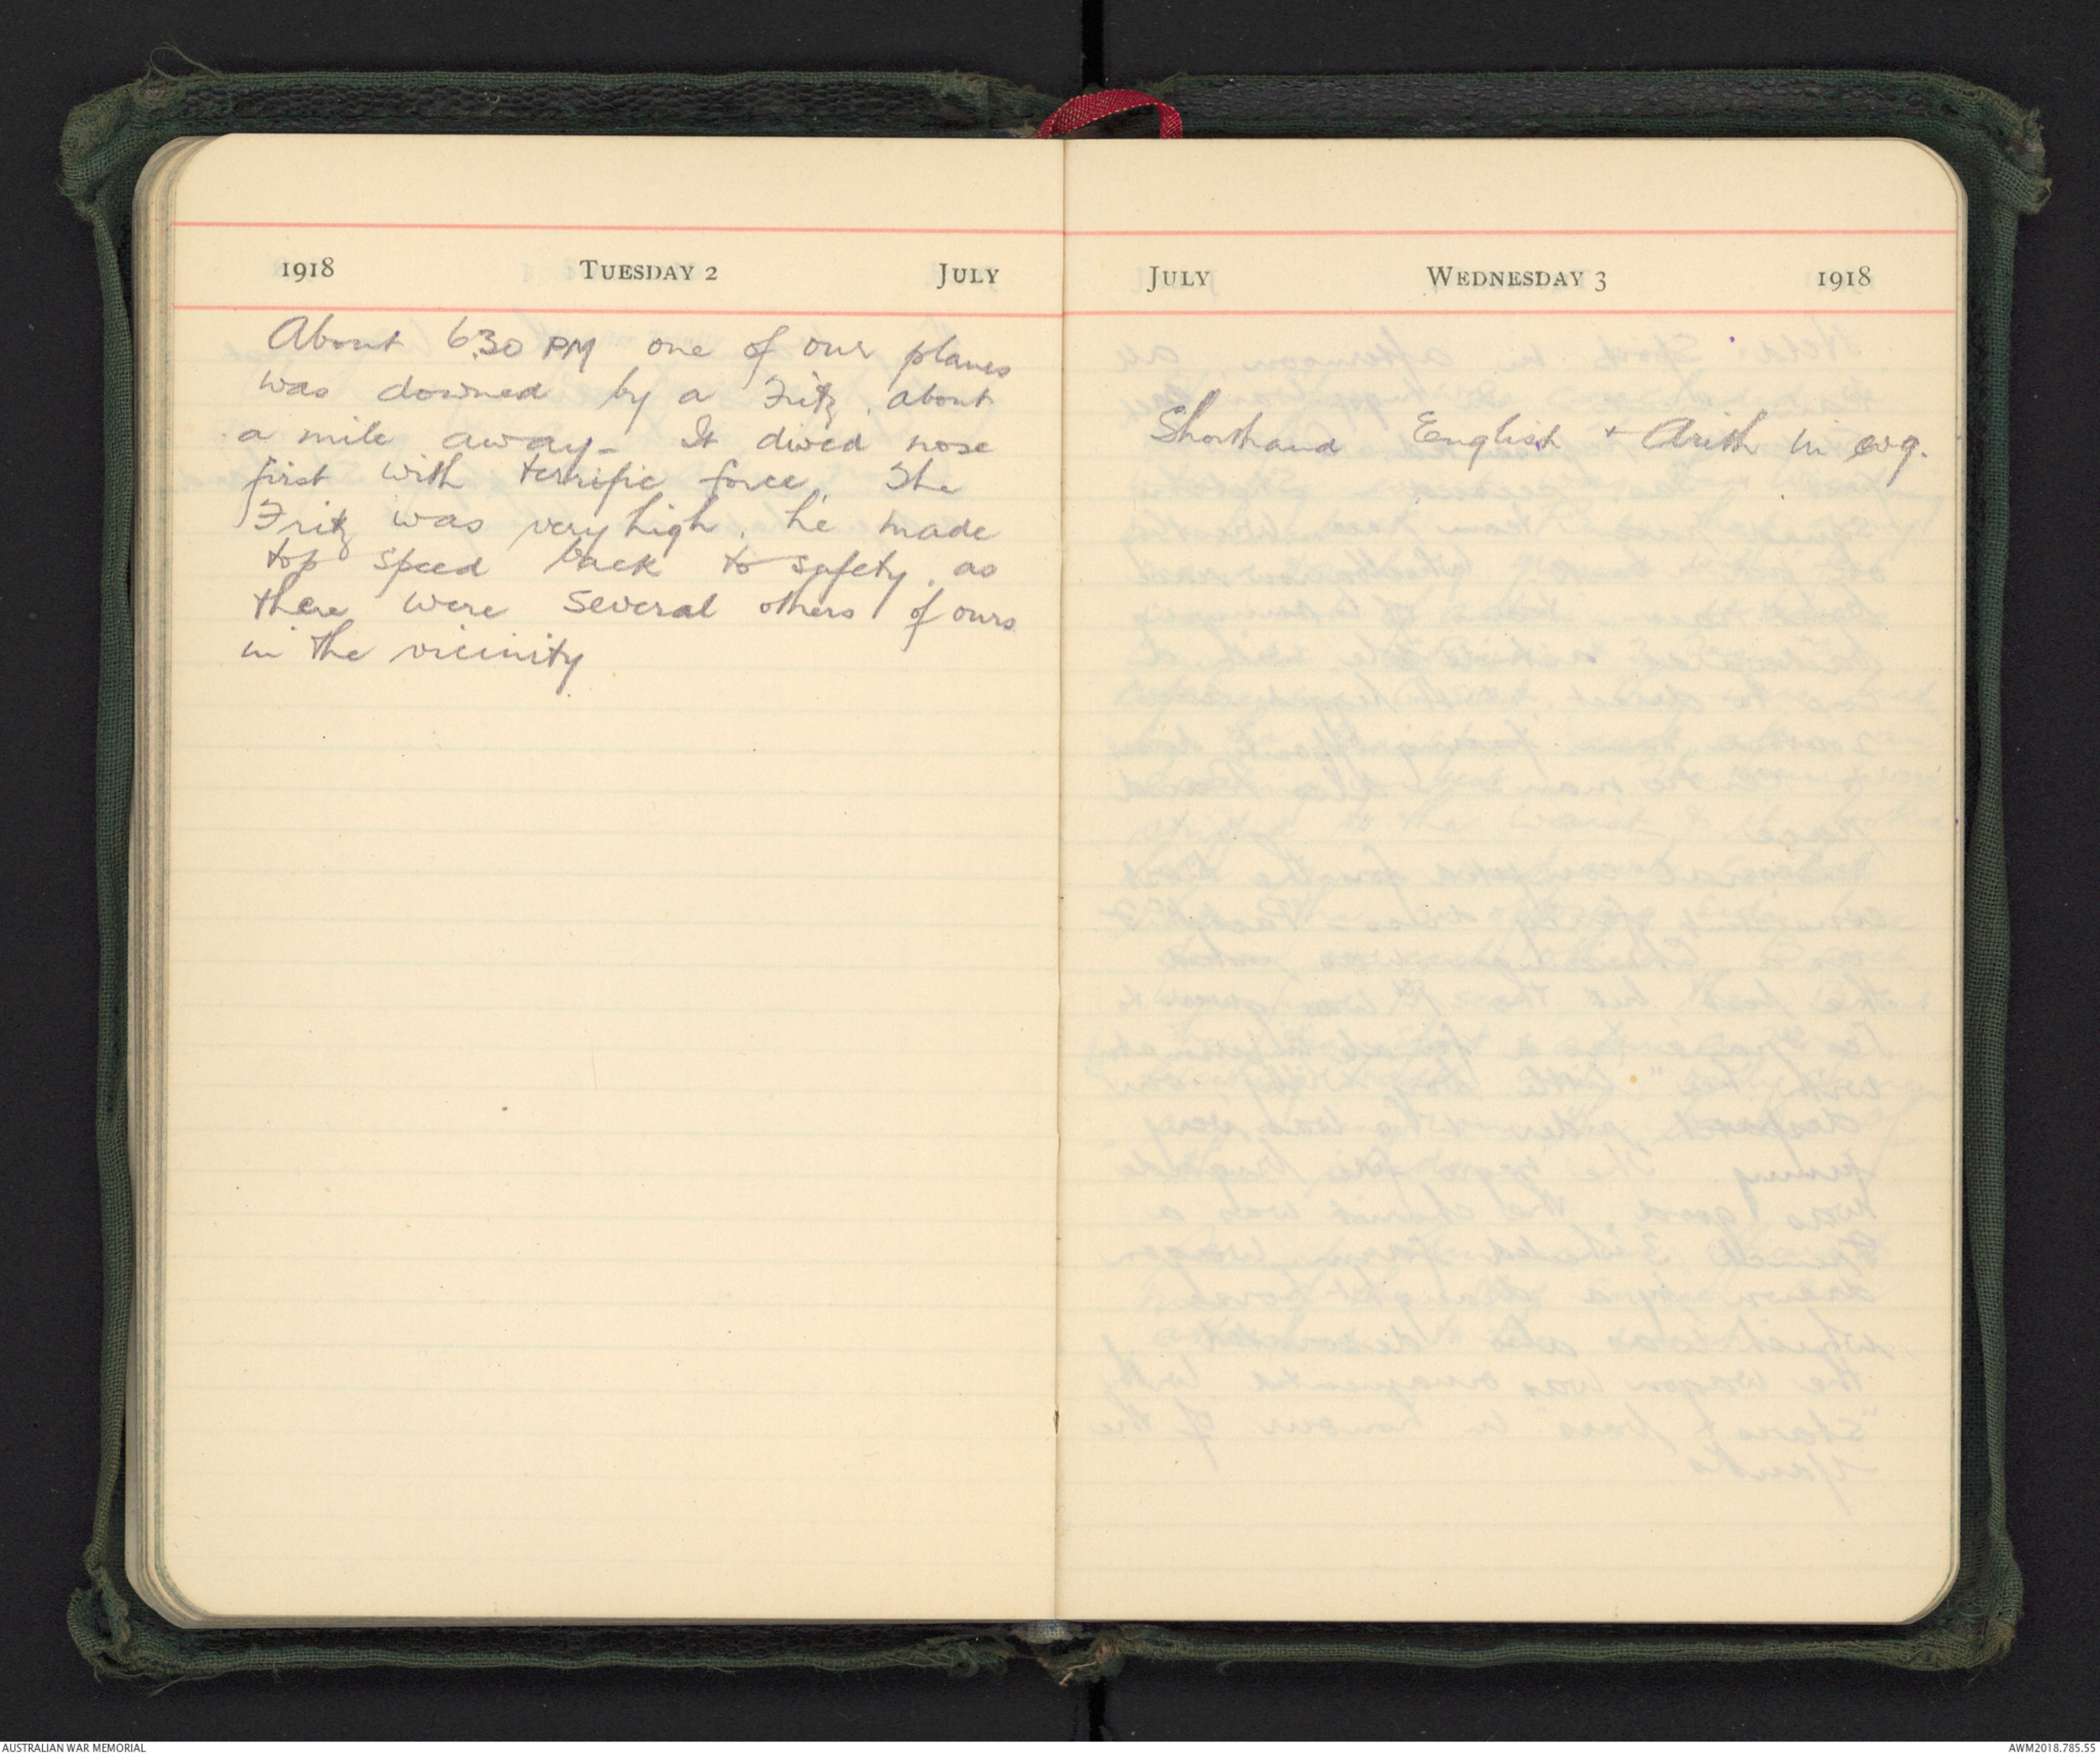 1918 TUESDAY 2 JULY
About 6.30 PM one of our planes
was downed by a Fritz, about
a mile away - It dived nose
first with terrific force. The
Fritz was very high, he made
top speed back to safety, as
there were several others of ours
in the vicinity
JULY WEDNESDAY 3 1918
Shorthand English + Arith in evg.
AUSTRALIAN WAR MEMORIAL
AWM2018.785.55